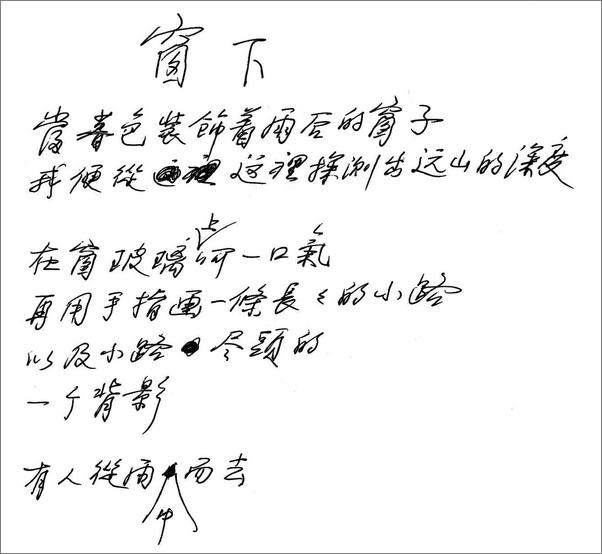 窗下
當暮色裝飾着雨后的窗子
我便從这裡探測出远山的深度
在窗玻璃上呵一口氣
再用手指画一條長々的小路
以及小路尽頭的
一个背影
有人從雨中而去